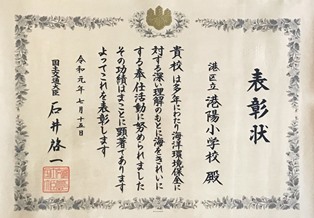 表彰状
港区立 港陽小学校 殿
貴校は多年にわたり海洋環境保全に
対する深い理解のもとに海をきれいに
する奉仕活動に努められました
その功績はまことに顕著であります
よってこれを表彰します
令和元年七月十五日
国土交通大臣 石井啓一